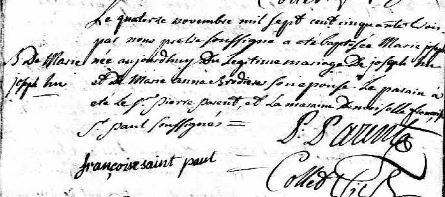 Le quatorze novembre mil sept cent cinquante trois
par nous prêtre soussigné a été baptisée Marie Joseph
B De Marie née aujourdhuy Du Legitime mariage De joseph hu
joseph hu et De Marie anne son epouse Le parain a
ete le Sr. pierre parent, et La maraine Demoiselle françoise
St. paul soussignés =
P. Parent
françoise saint paul